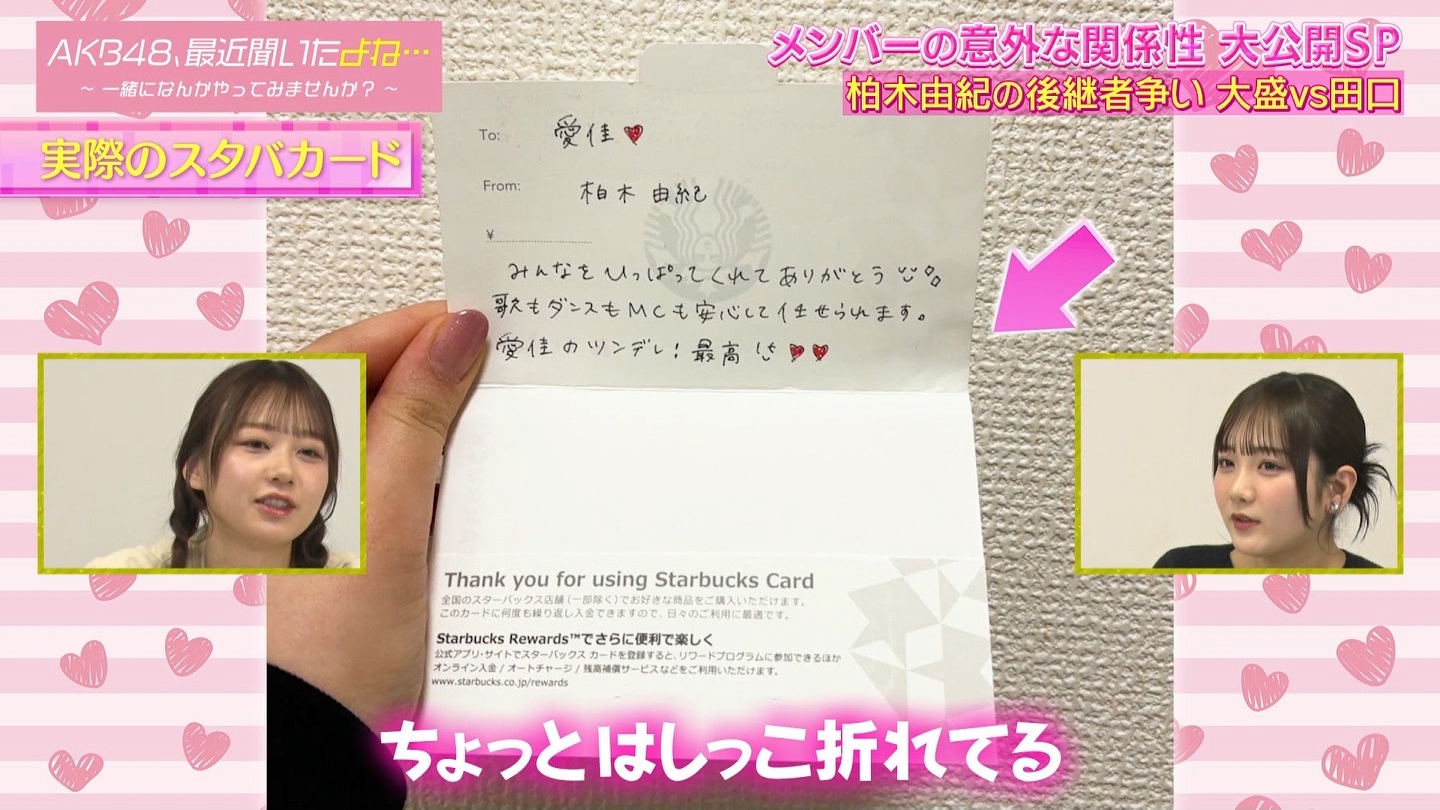 AKB48、最近聞いたよね…
～ 一緒になんかやってみませんか？ ～
メンバーの意外な関係性 大公開SP
柏木由紀の後継者争い 大盛vs田口
実際のスタバカード
To: 愛佳
From: 柏木 由紀
¥
みんなをひっぱってくれてありがとう
歌もダンスもMCも安心して任せられます。
愛佳のツンデレ！最高
Thank you for using Starbucks Card
全国のスターバックス店舗（一部除く）でお好きな商品をご購入いただけます。
このカードに何度も繰り返し入金できますので、日々のご利用に最適です。
Starbucks Rewards™でさらに便利で楽しく
公式アプリ・サイトでスターバックス カードを登録すると、リワードプログラムに参加できるほか
オンライン入金 / オートチャージ / 残高補償サービスなどをご利用いただけます。
www.starbucks.co.jp/rewards
ちょっとはしっこ折れてる